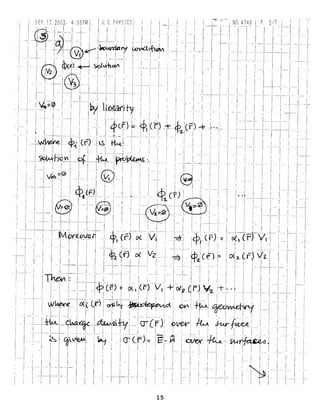 SEP. 17. 2003 4:08PM U. C. PHYSICS NO. 4749 P. 3/7
3 a)
V₁ ← boundary condition
V₂ ϕ(r) ← solution
V₃
V∞=0 by linearity
ϕ(r⃗) = ϕ₁(r⃗) + ϕ₂(r⃗) + ...
where ϕᵢ(r⃗) is the
solution of the problems:
V∞=0 V₁ V=0
ϕ₁(r⃗) ϕ₂(r⃗) ...
V=0 V=0 V₂=0 V₃=0
Moreover ϕ₁(r⃗) ∝ V₁ ⇒ ϕ₁(r⃗) = α₁(r⃗) V₁
ϕ₂(r⃗) ∝ V₂ ⇒ ϕ₂(r⃗) = α₂(r⃗) V₂
Then:
ϕ(r⃗) = α₁(r⃗) V₁ + α₂(r⃗) V₂ + ...
where αᵢ(r⃗) only depend on the geometry
the charge density σ(r⃗) over the surface
is given by σ(r⃗) = E⃗ · n̂ over the surfaces.
15